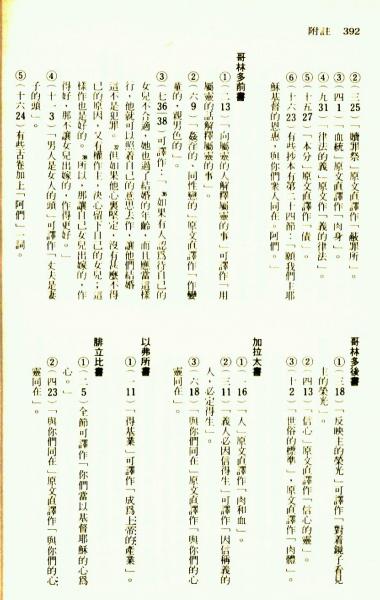 附註　392
②（三·25）「贖罪祭」原文直譯作「蔽罪所」。
③（四·1）「血統」原文直譯作「肉身」。
④（九·31）「律法的義」原文作「義的律法」。
⑤（十五·27）「本分」原文直譯作「債」。
⑥（十六·23）有些抄本有第二十四節：「願我們主耶
穌基督的恩惠，與你們衆人同在。阿們。」
哥林多前書
①（二·13）「向屬靈的人解釋屬靈的事」可譯作「用
屬靈的話解釋屬靈的事」。
②（六·9）「姦淫的、同性戀的」原文直譯作「作孌
童的，親男色的」。
③（七·36-38）可譯作：「36如果有人認爲待自己的
女兒不合適，她也過了結婚的年齡，而且應當這樣
行，他就可以照着自己的意思去作，讓他們結婚，
這不是犯罪。37但如果他心裏堅定，沒有甚麼不得
已的原因，又有權作主，決心留下自己的女兒，這
樣作也是好的。38所以，那讓自己女兒出嫁的，作
得好，那不讓女兒出嫁的，作得更好。」
④（十一·3）「男人是女人的頭」可譯作「丈夫是妻
子的頭」。
⑤（十六·24）有些古卷加上「阿們」一詞。
哥林多後書
①（三·18）「反映主的榮光」可譯作「對着鏡子看見
主的榮光」。
②（四·13）「信心」原文直譯作「信心的靈」。
③（十·2）「世俗的標準」，原文直譯作「肉體」。
加拉太書
①（一·16）「人」原文直譯作「肉和血」。
②（三·11）「義人必因信得生」可譯作「因信稱義的
人，必定得生」。
③（六·18）「與你們同在」原文直譯作「與你們的心
靈同在」。
以弗所書
①（一·11）「得基業」可譯作「成爲上帝的產業」。
腓立比書
①（二·5）全節可譯作「你們當以基督耶穌的心爲
心。」
②（四·23）「與你們同在」原文直譯作「與你們的心
靈同在」。